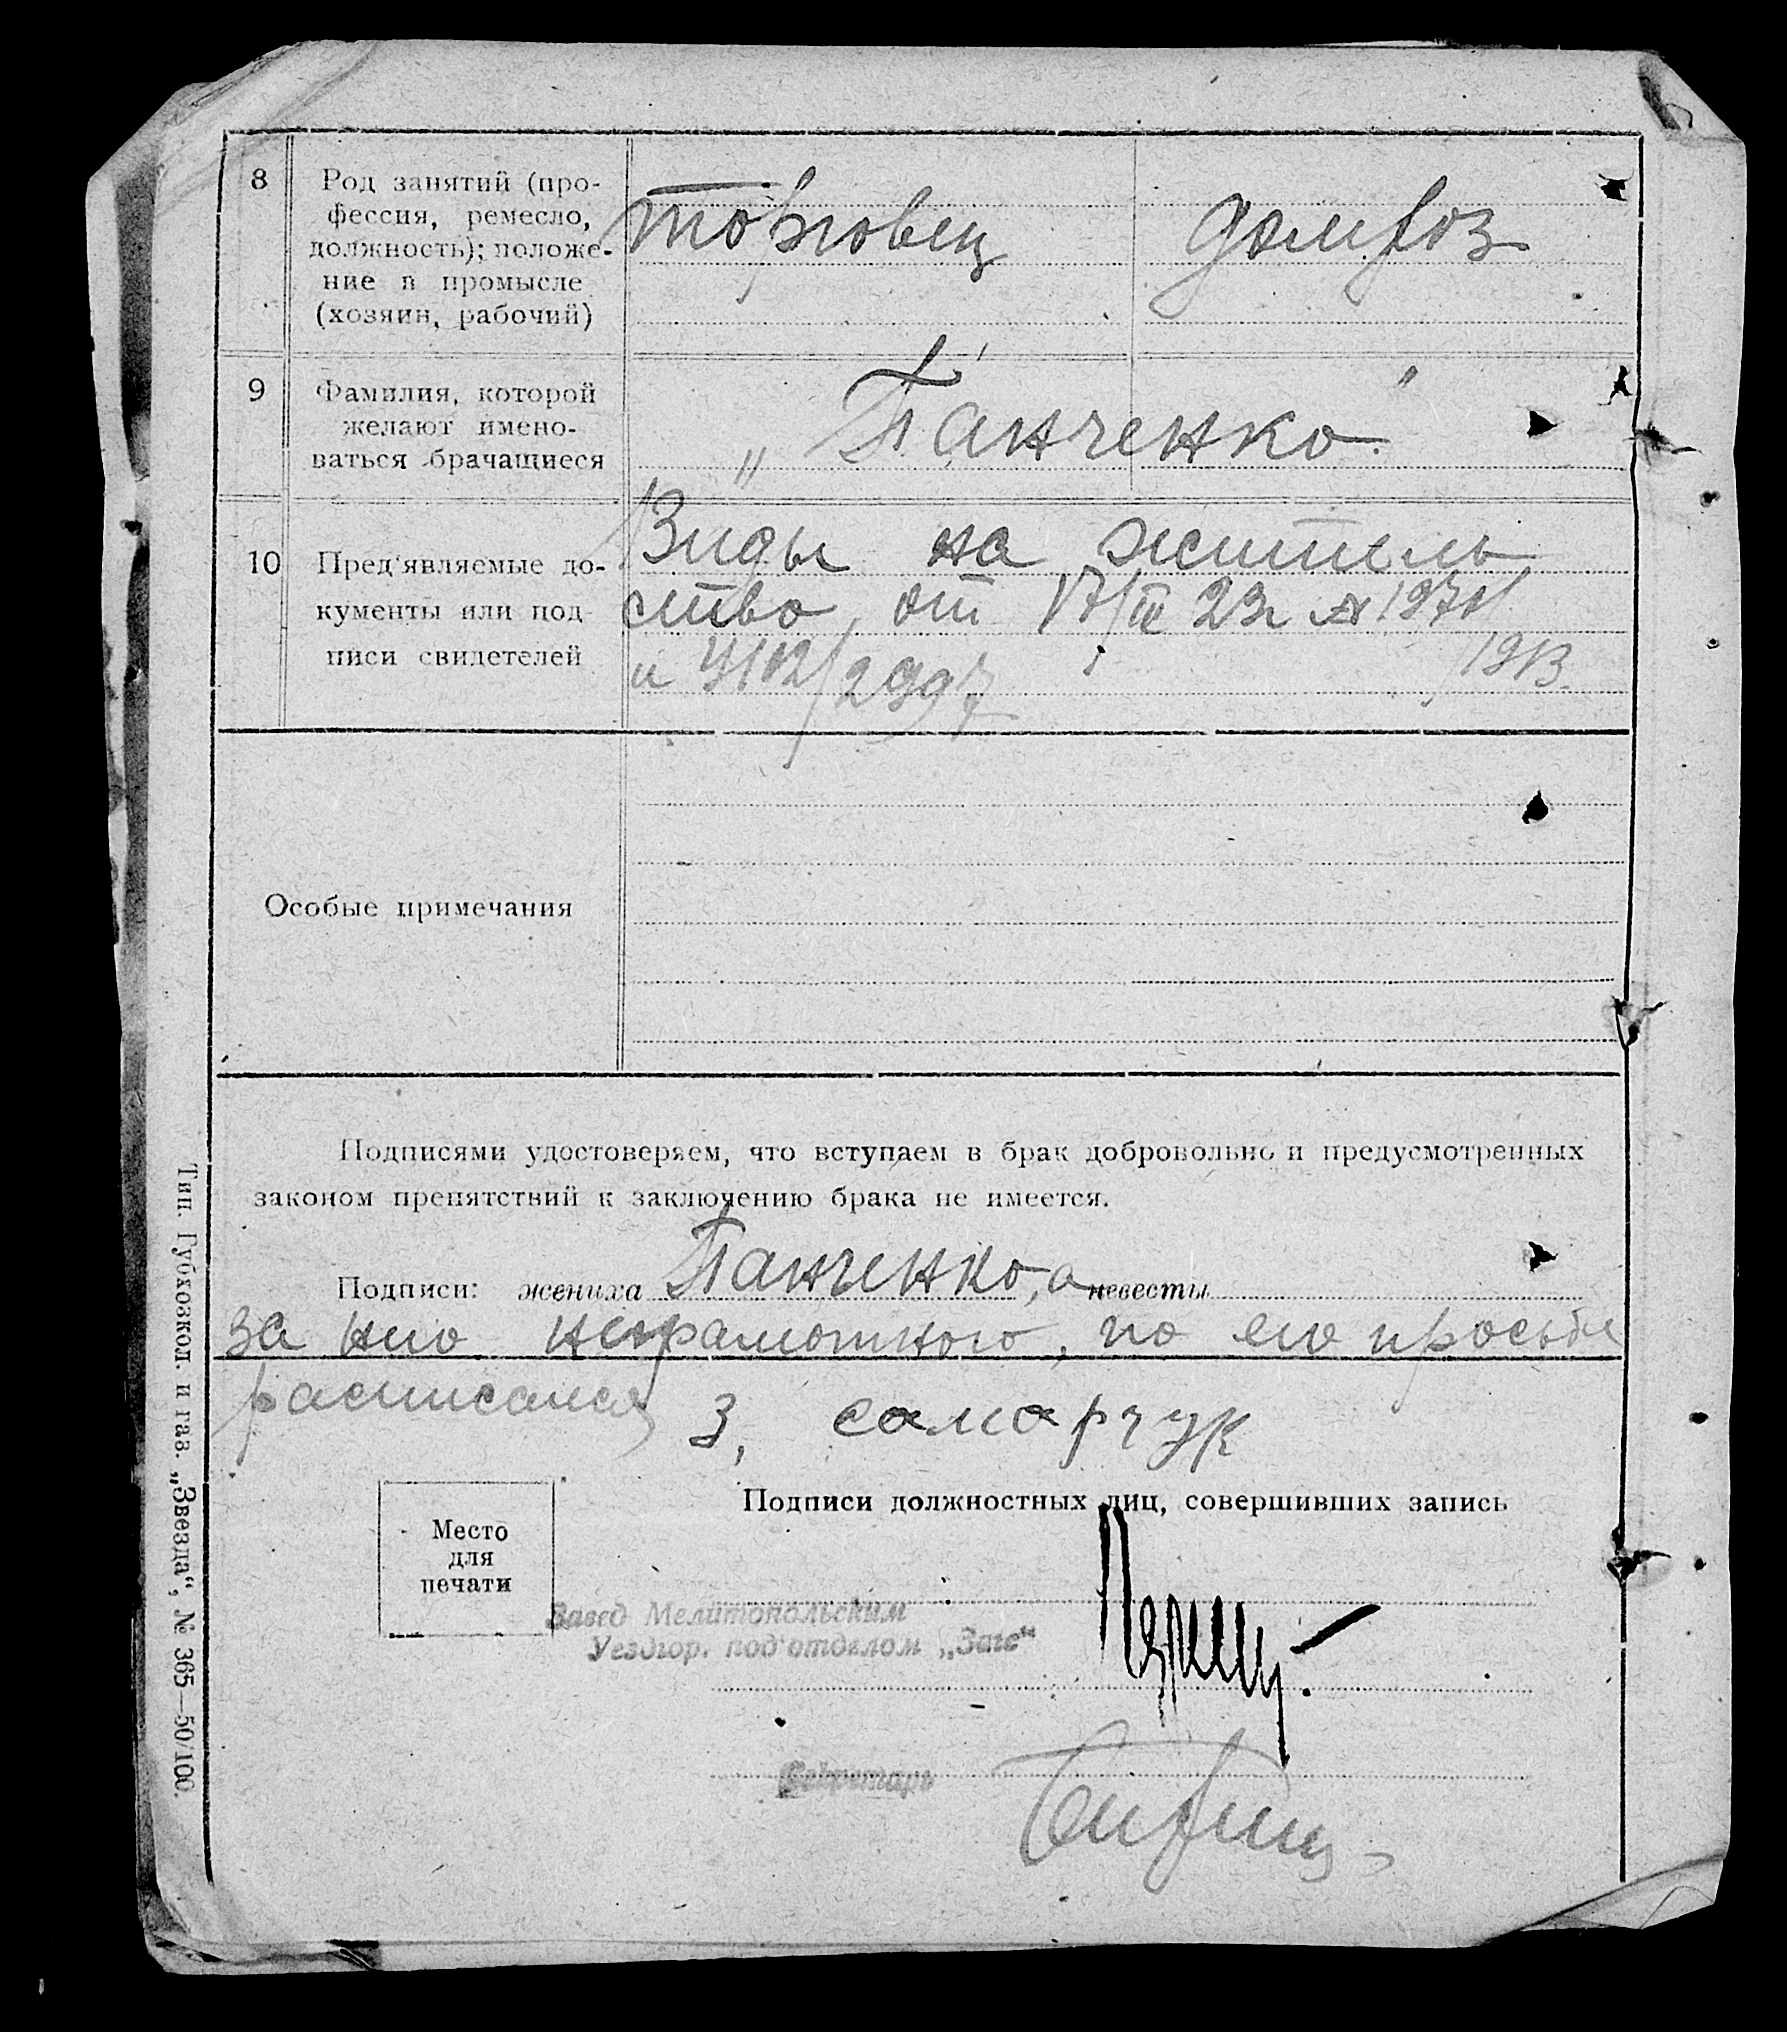 8
Род занятий (про-
фессия, ремесло,
должность); положе-
ние в промысле
(хозяин, рабочий)
торговец
домхоз
9
Фамилия, которой
желают имено-
ваться брачащиеся
„ Панченко "
10
Пред'являемые до-
кументы или под-
писи свидетелей
Виды на житель
ство от 17/III 23г
и
Особые примечания
Подписями удостоверяем, что вступаем в брак добровольно и предусмотренных
законом препятствий к заключению брака не имеется.
Подписи: жениха Панченко, а невесты
за него неграмотного, по его просьбе
расписался З. самарчук
Подписи должностных лиц, совершивших запись
Место
для
печати
Завед Мелитопольским
Уездгор. под'отделом „Загс"
Секретарь
Тип. Губхозкол. и газ. „Звезда", № 365—50/100.